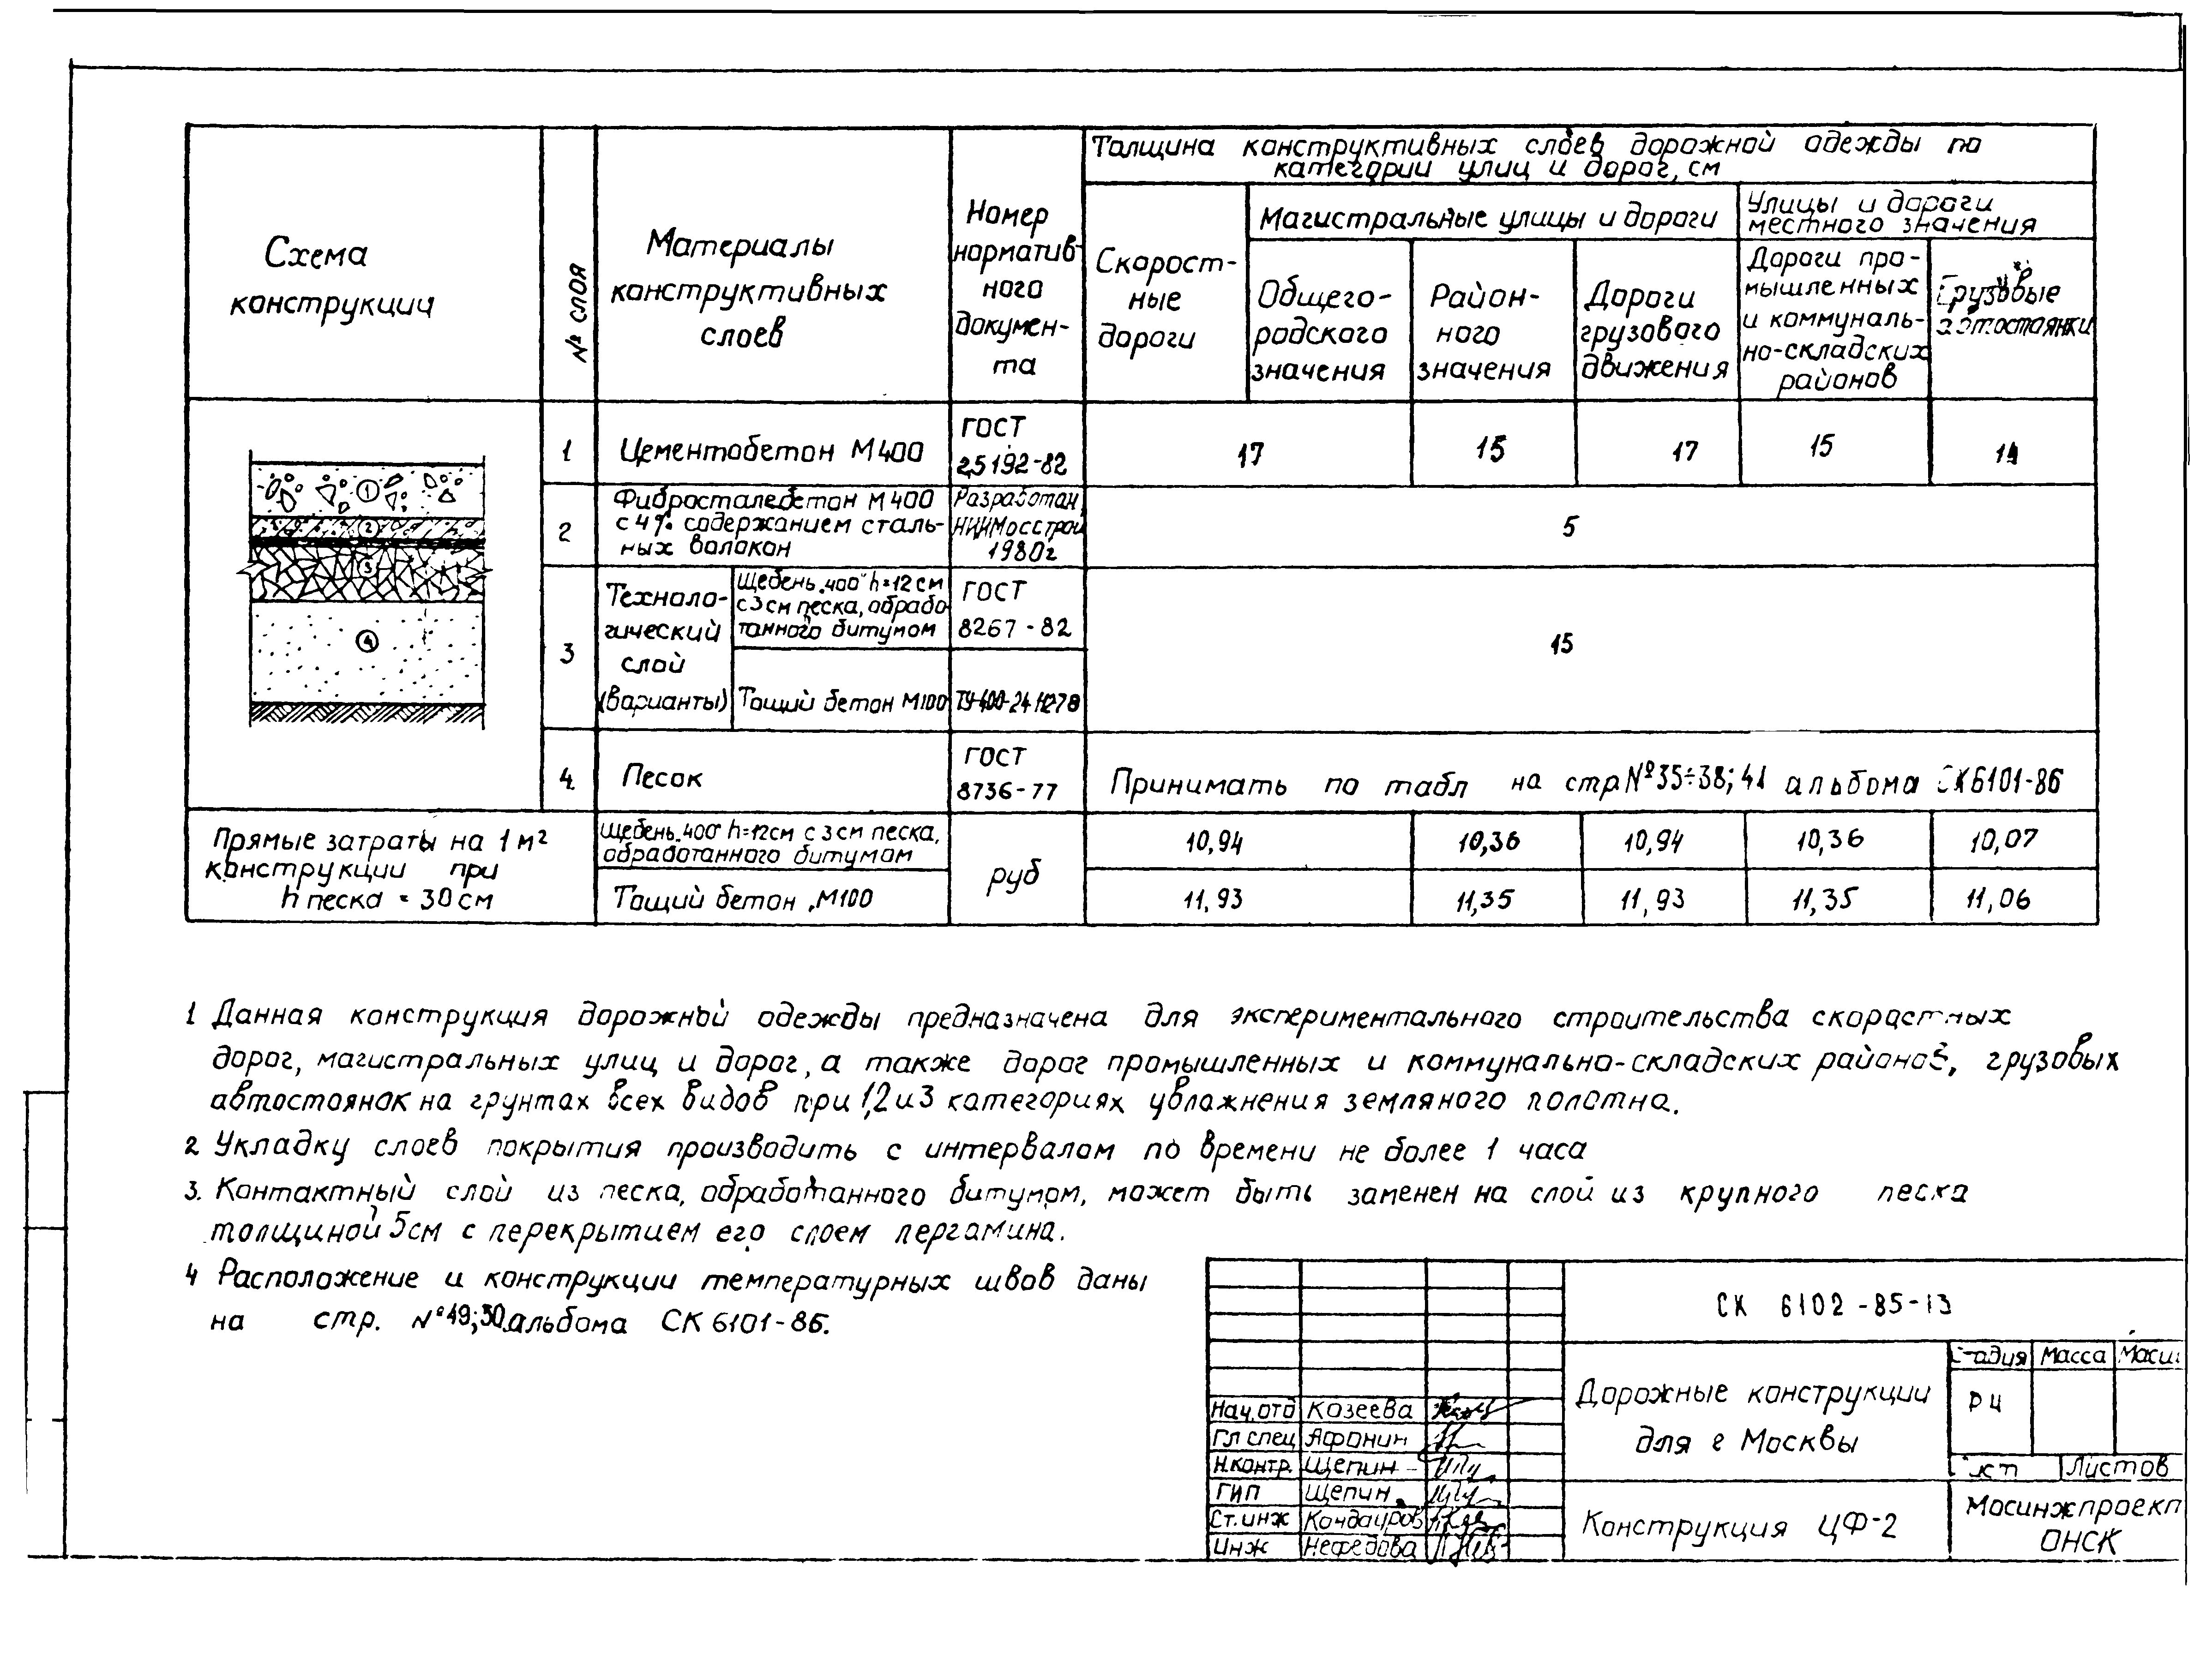 Толщина конструктивных слоев дорожной одежды по
категории улиц и дорог, см
Схема
конструкции
№ слоя
Материалы
конструктивных
слоев
Номер
норматив-
ного
докумен-
та
Скорост-
ные
дороги
Магистральные улицы и дороги
Улицы и дороги
местного значения
Общего-
родского
значения
Район-
ного
значения
Дороги
грузового
движения
Дороги про-
мышленных
и коммуналь-
но-складских
районов
Грузовые
автостоянки
1
Цементобетон М400
ГОСТ
25192-82
17
15
17
15
14
2
Фибросталебетон М400
с 4% содержанием сталь-
ных волокон
Разработан
НИИМосстрой
1980г
5
3
Техноло-
гический
слой
(варианты)
Щебень „400" h=12см
с 3см песка, обрабо
танного битумом
ГОСТ
8267-82
15
Тощий бетон М100
4
Песок
ГОСТ
8736-77
Принимать по табл на стр №35÷38; 41 альбома СК6101-86
1
2
3
4
Прямые затраты на 1м²
конструкции при
h песка = 30см
Щебень „400" h=12см с 3см песка,
обработанного битумом
руб
10,94
10,36
10,94
10,36
10,07
Тощий бетон „М100
11,93
11,35
11,93
11,35
11,06
1 Данная конструкция дорожной одежды предназначена для экспериментального строительства скоростных
дорог, магистральных улиц и дорог, а также дорог промышленных и коммунально-складских районов, грузовых
автостоянок на грунтах всех видов при 1,2 и 3 категориях увлажнения земляного полотна.
2 Укладку слоев покрытия производить с интервалом по времени не более 1 часа
3. Контактный слой из песка, обработанного битумом, может быть заменен на слой из крупного песка
толщиной 5см с перекрытием его слоем пергамина.
4 Расположение и конструкции температурных швов даны
на стр. №49; 50 альбома СК 6101-86.
СК 6102-85-13
Дорожные конструкции
для г Москвы
Стадия Масса
РЧ
Лист Листов
Конструкция ЦФ-2
Мосинжпроект
ОНСК
Нач.отд Козеева
Гл спец Афонин
Н.контр. Щепин
ГИП Щепин
Ст.инж Кондауров
Инж Нефедова